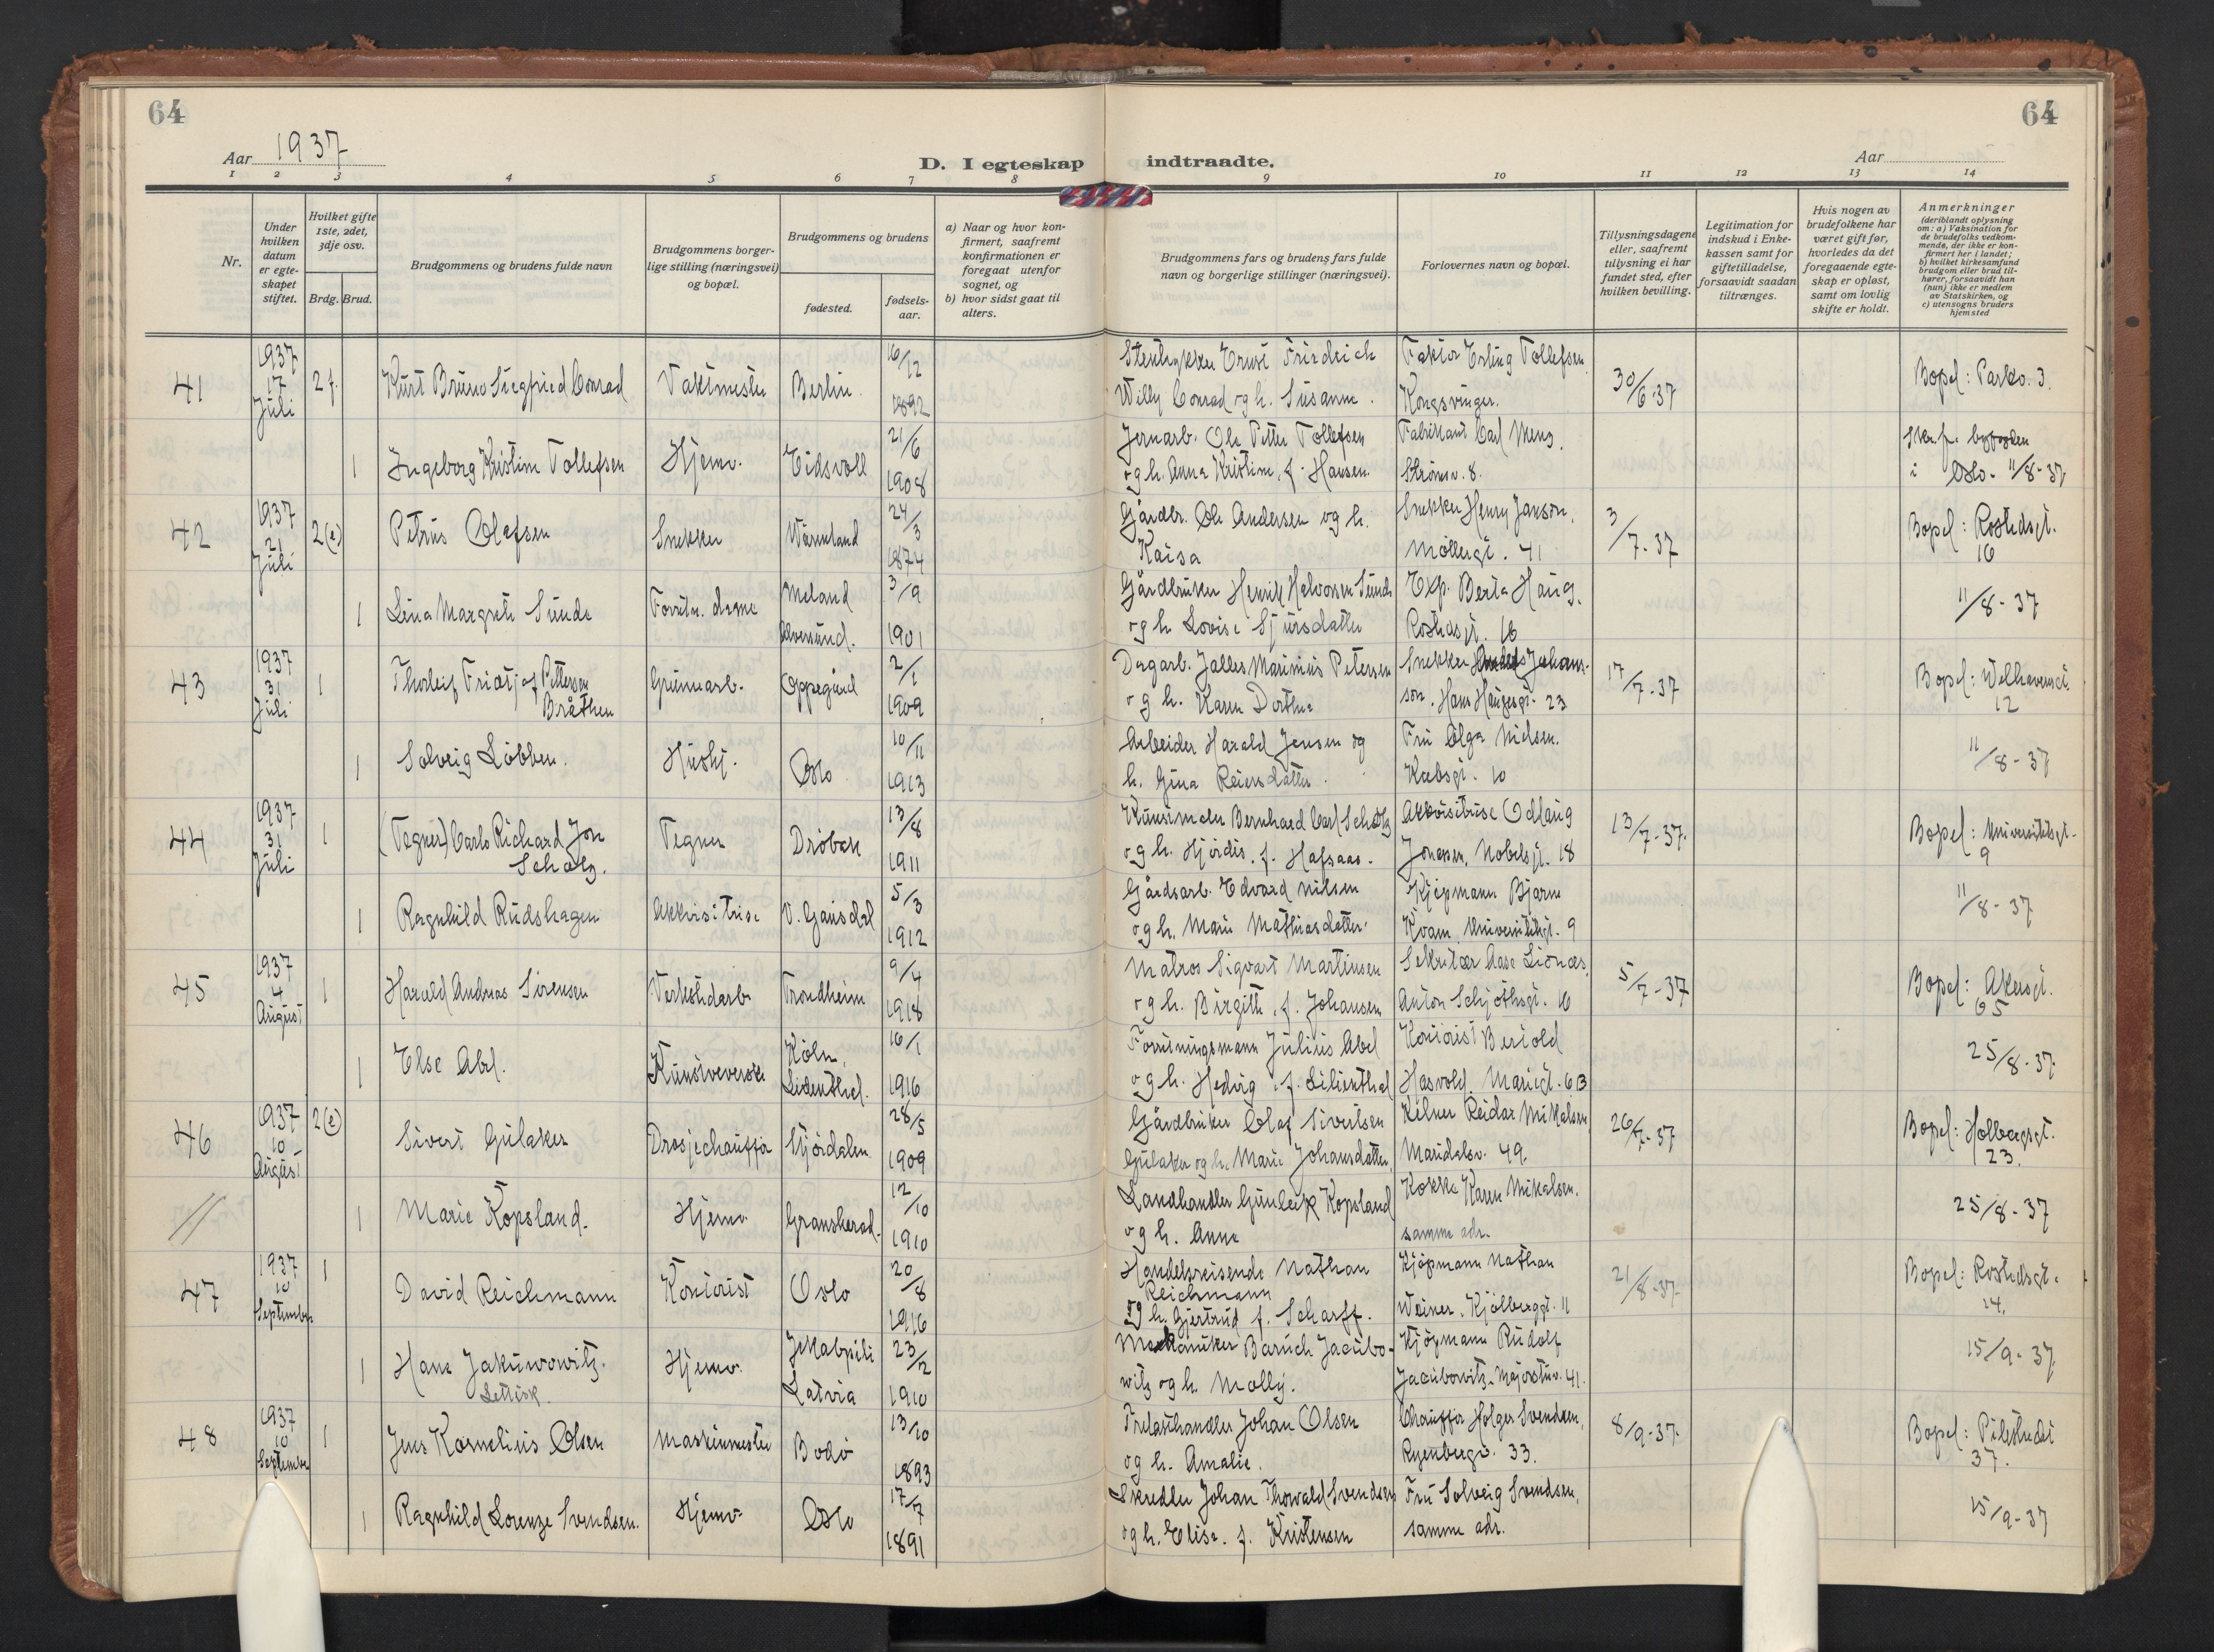 64
64
Aar 1937
D. I egteskap indtraadte.
Aar
1 2 3 4 5 6 7 8 9 10 11 12 13 14
Nr.
Under hvilken datum er egteskapet stiftet.
Hvilket gifte 1ste, 2det, 3dje osv.
Brdg. Brud.
Brudgommens og brudens fulde navn
Brudgommens borgerlige stilling (næringsvei) og bopæl.
Brudgommens og brudens
fødested.
fødsels-aar.
a) Naar og hvor konfirmert, saafremt konfirmationen er foregaat utenfor sognet, og
b) hvor sidst gaat til alters.
Brudgommens fars og brudens fars fulde navn og borgerlige stillinger (næringsvei).
Forlovernes navn og bopæl.
Tillysningsdagene eller, saafremt tillysning ei har fundet sted, efter hvilken bevilling.
Legitimation for indskud i Enkekassen samt for giftetilladelse, forsaavidt saadan tiltrænges.
Hvis nogen av brudefolkene har været gift før, hvorledes da det foregaaende egteskap er opløst, samt om lovlig skifte er holdt.
Anmerkninger
(deriblandt oplysning om: a) Vaksination for de brudefolks vedkommende, der ikke er konfirmert her i landet;
b) hvilket kirkesamfund brudgom eller brud tilhører, forsaavidt han (hun) ikke er medlem av Statskirken, og
c) utensogns bruders hjemsted
41 1937 17 Juli 2 f. Kurt Bruno Siegfried Conrad Vaktmester Berlin 16/12 1892 Ernst Friedrich Willy Conrad og h. Susanne. Faktor Erling Tollefsen Kongsvinger. 30/6-37 Bopel: Parkv. 3.
1 Ingeborg Kristine Tollefsen Hjemv. Eidsvoll 21/6 1908 Jernarb. Ole Petter Tollefsen og h. Anna Kristine, f. Hansen. Fabrikant Carl Strömsv. 8. i Oslo. 11/8-37
42 1937 21 Juli 2(e) Petrus Olafsen Snekker Wärmland 24/3 1874 Gårdbr. Ole Andersen og h. Kaisa Snekker Henry Janson, Möllergt. 41 3/7-37 Bopel: Rostedsgt. 16
1 Lina Margrete Sunde Forretn. dame Meland Alversund. 3/9 1901 Gårdbruker Henrik Halvorsen Sunde og h. Lovise Sjursdatter Exp. Berta Haug. Rostedsgt. 16 11/8-37
43 1937 31 Juli 1 Thorleif Fridtjof Pettersen Bråthen Grünnarb. Oppegård 2/1 1909 Dagarb. Jalles Marinius Petersen og h. Karen Dorthea Snekker Johansson, Hans Haugesgt. 23 17/7-37 Bopel: Welhavensgt. 12
1 Solveig Löbben. Hushj. Oslo 10/11 1913 Arbeider Harald Jensen og h. Gina Reiersdatter. Fru Olga Nielsen. 10 11/8-37
44 1937 31 Juli 1 (Tegner) Carlo Richard Jon Scholz. Tegner Dröbak 13/8 1911 Kunstmaler Bernhard Carl Scholz og h. Hjördis, f. Hafsaas. Akkvisitrise Odlaug Jonassen, Nobelsgt. 18 13/7-37. Bopel: Universitetsgt. 9
1 Ragnhild Rudshagen Akkvisitrise V. Gausdal 5/3 1912 Gårdsarb. Edvard Nilsen og h. Marie Mathiasdatter. Kjöpmann Bjarne Kvam, Universitetsgt. 9 11/8-37
45 1937 4 August 1 Harald Andreas Sörensen Verkstedarb. Trondheim 9/4 1918 Matros Sigvart Martinsen og h. Birgitte, f. Johansen Sekretær Aase Lionæs, Anton Schjöthsgt. 16 5/7-37 Bopel: Akersgt. 65
1 Else Abel. Kunstveverske Köln, Lidenthal. 16/1 1916 Forretningsmann Julius Abel og h. Hedvig, f. Lilienthal Kontorist Bertold Hasvold, Mariegt. 6B 25/8-37
46 1937 10 August 2(e) Sivert Gulaker Drosjechauffør Stjördalen 28/5 1909 Gårdbruker Olaf Sivertsen Gulaker og h. Marie Johansdatter Kelner Reidar Mikalsen Maridalsv. 49. 26/7-37 Bopel: Holbergsgt. 23.
1 Marie Kopsland. Hjemv. Gransherad. 12/10 1910 Landhandler Gunleik Kopsland og h. Anne Kokke Karen Mikalsen. samme adr. 25/8-37
47 1937 10 September 1 David Reichmann Kontorist Oslo 20/8 1916 Handelsreisende Nathan Reichmann og h. Gjertrud f. Scharff. Kjöpmann Nathan Weiner. Kjölberggt. 11 21/8-37 Bopel: Rostedsgt. 14.
1 Hane Jakubowitz. Lettisk. Hjemv. Jekabpili Latvia 23/2 1910 Mekaniker Baruch Jacubowitz og h. Molly. Kjöpmann Rudolf Jacubowitz. Majorstuv. 41. 15/9-37
48 1937 10 September 1 Jens Kornelius Olsen Maskinmester Bodö 13/10 1893 Trelasthandler Johan Olsen og h. Amalie. Chauffør Holger Svendsen, Ryenbergv. 33. 8/9-37. Bopel: Pilestredet 37.
1 Ragnhild Lorenze Svendsen. Hjemv. Oslo 17/7 1891 Skredder Johan Thorwald Svendsen og h. Elise. f. Kristensen Fru Solveig Svendsen, samme adr. 15/9-37